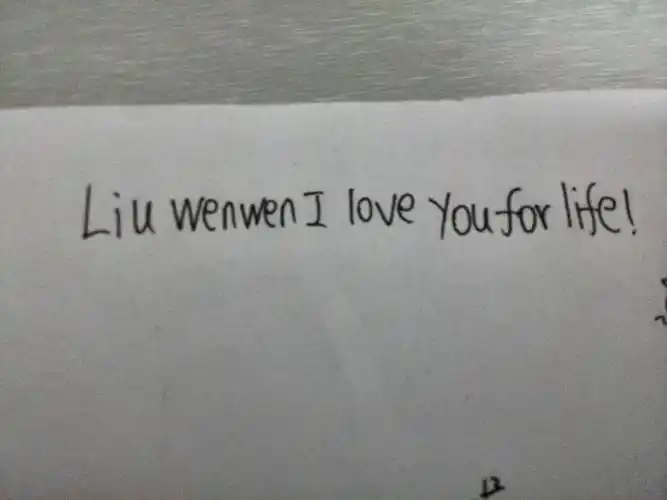 Liu wenwen I love you for life!